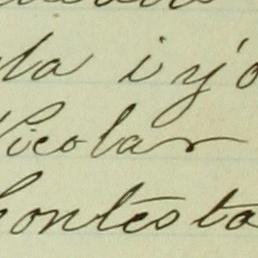 la i yo
Nicolas
Contesta